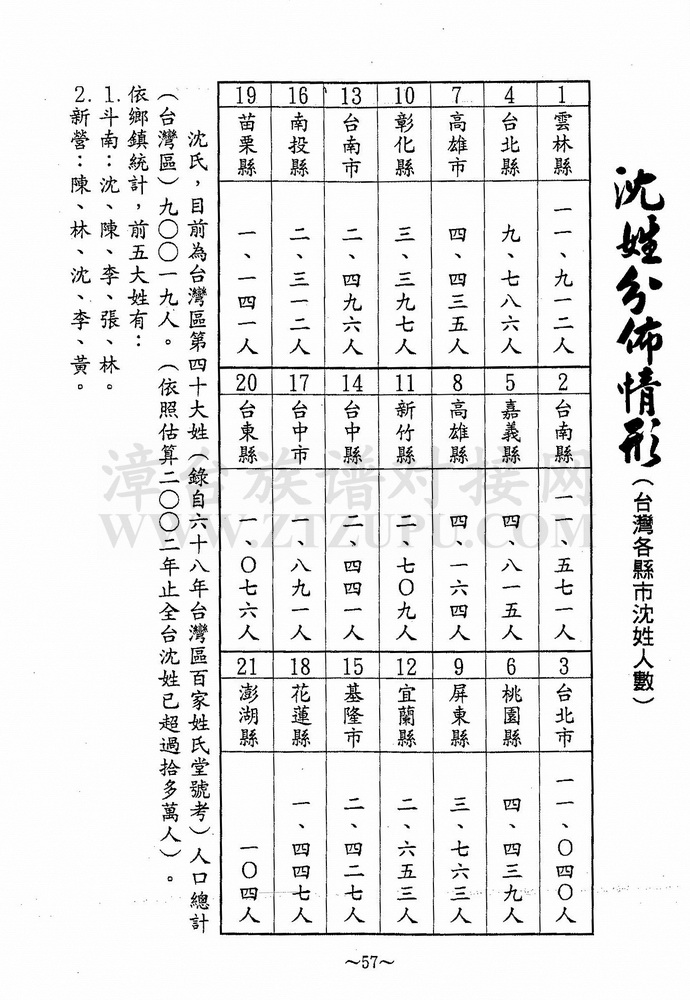 沈姓分佈情形（台灣各縣市沈姓人數）
1 雲林縣 一一、九一二人
2 台南縣 一一、五七一人
3 台北市 一一、〇四〇人
4 台北縣 九、七八六人
5 嘉義縣 四、八一五人
6 桃園縣 四、四三九人
7 高雄市 四、四三五人
8 高雄縣 四、一六四人
9 屏東縣 三、七六三人
10 彰化縣 三、三九七人
11 新竹縣 二、七〇九人
12 宜蘭縣 二、六五三人
13 台南市 二、四九六人
14 台中縣 二、四四一人
15 基隆市 二、四二七人
16 南投縣 二、三一二人
17 台中市 一、八九一人
18 花蓮縣 一、四四七人
19 苗栗縣 一、一四一人
20 台東縣 一、〇七六人
21 澎湖縣 一〇四人
沈氏，目前為台灣區第四十大姓（錄自六十八年台灣區百家姓氏堂號考）人口總計
（台灣區）九〇〇一九人。（依照估算二〇〇二年止全台沈姓已超過拾多萬人）。
依鄉鎮統計，前五大姓有：
1.斗南：沈、陳、李、張、林。
2.新營：陳、林、沈、李、黃。
～57～
漳台族谱对接网
WWW.ZTZUPU.COM